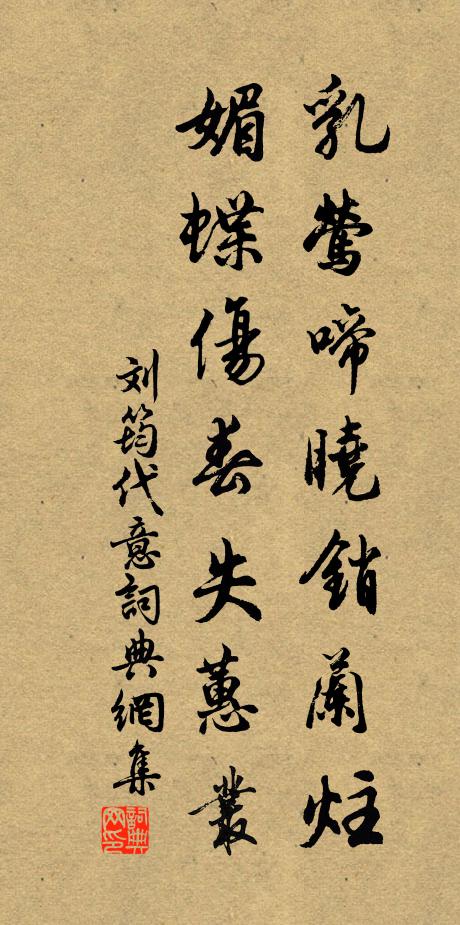 乳鶯啼曉銷蘭炷
媚蝶傷春失蕙叢
刘筠代意詞典網集
詞典网印